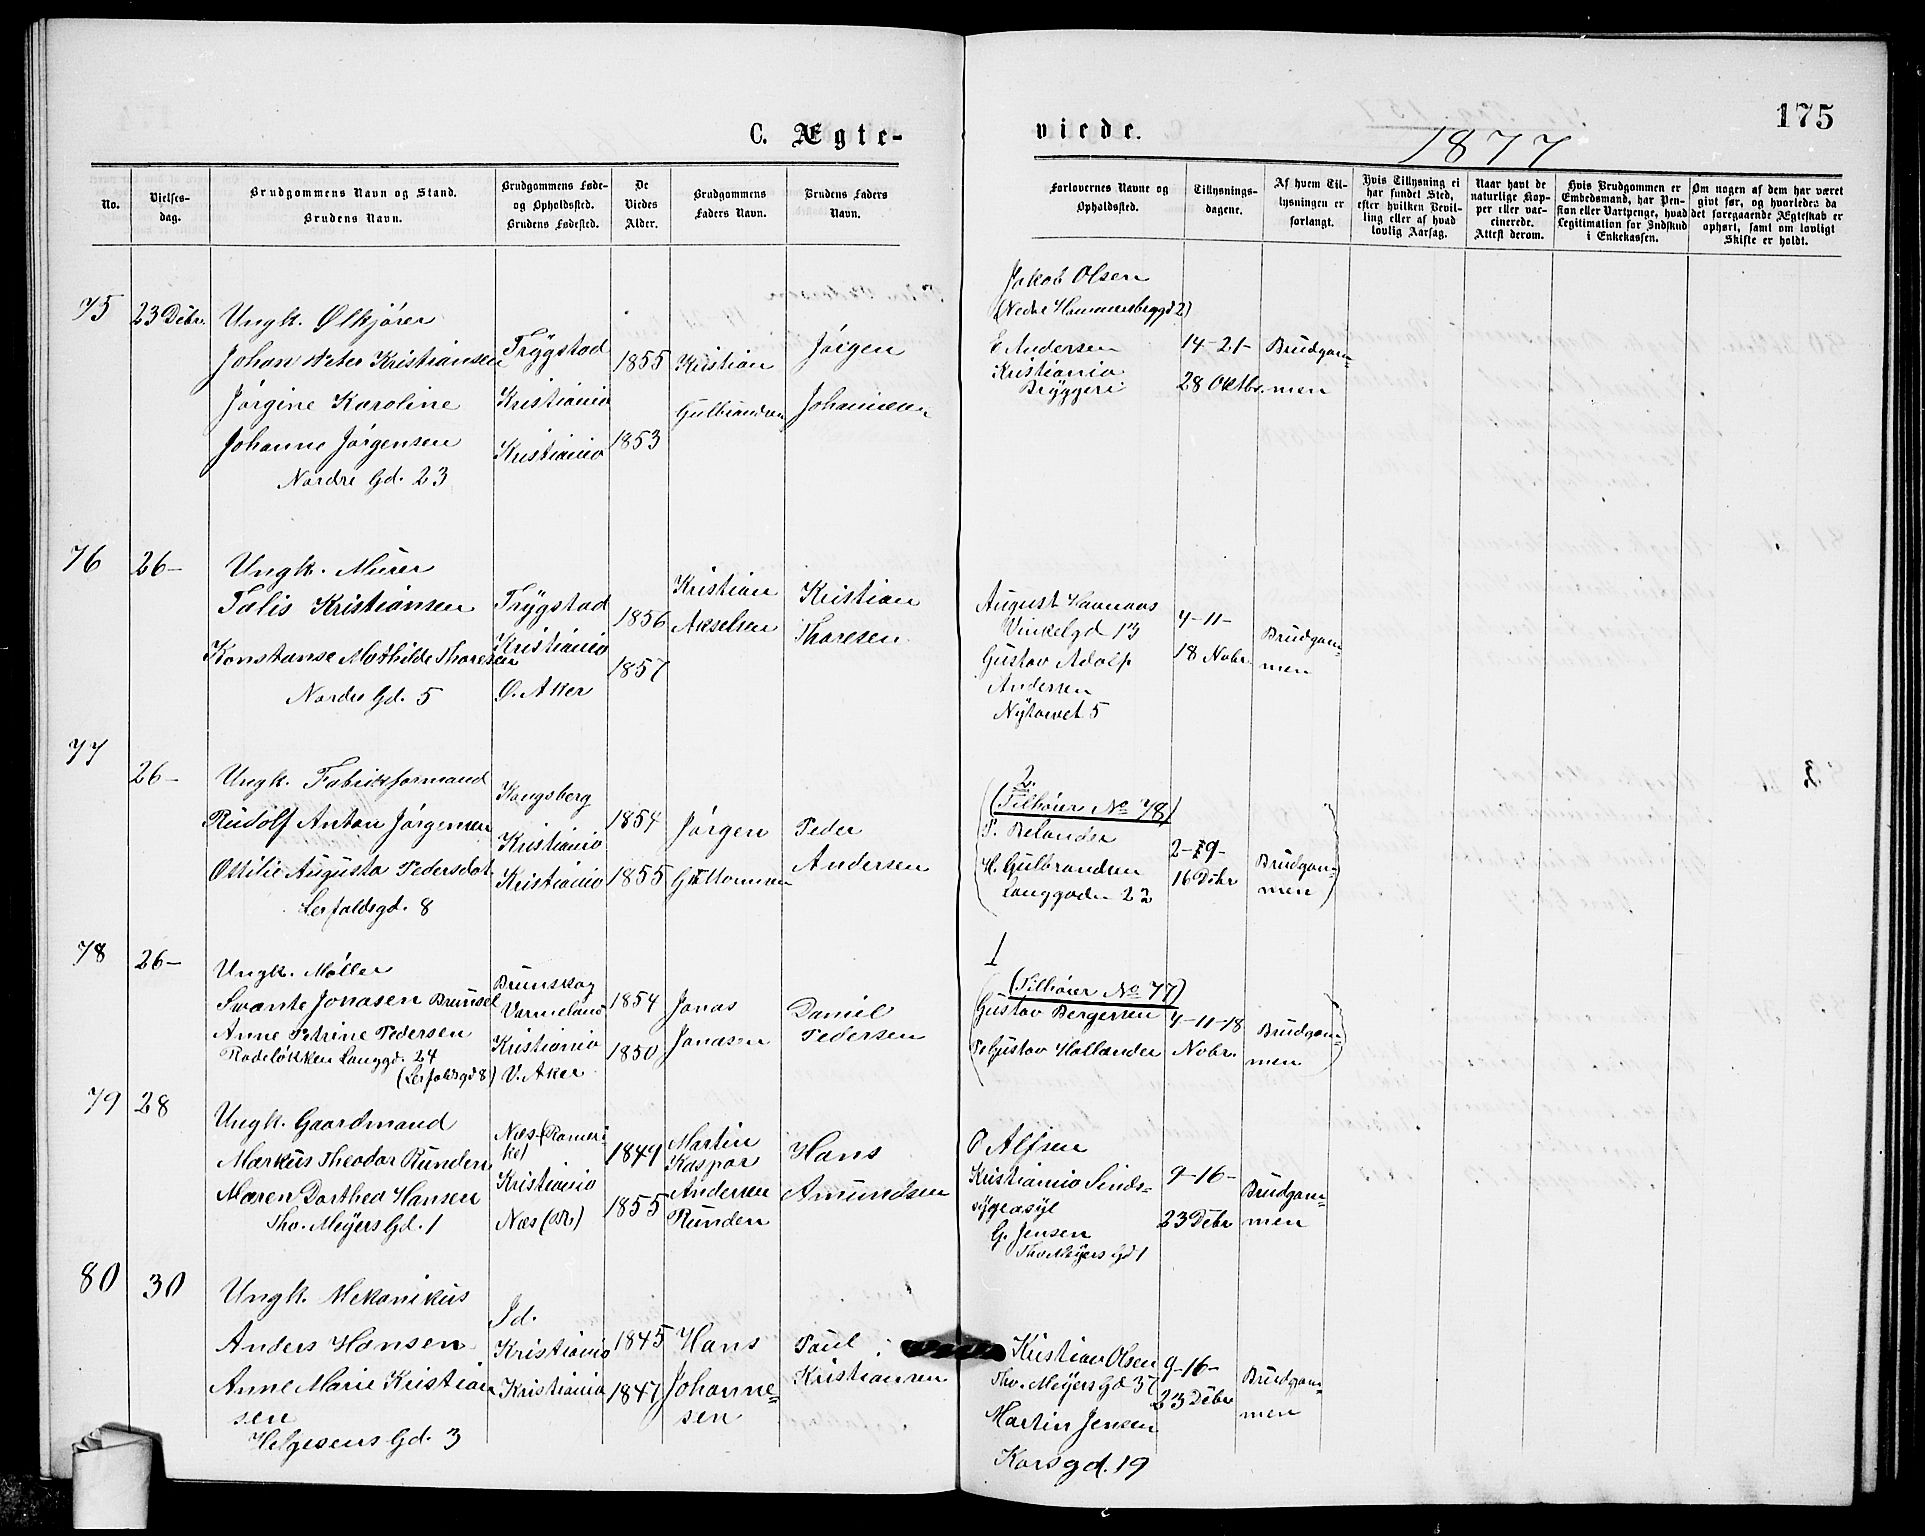 175
C. Ægte-
viede.
1877
No.
Vielses-
dag.
Brudgommens Navn og Stand.
Brudens Navn.
Brudgommens Føde-
og Opholdssted.
Brudens Fødested.
De
Viedes
Alder.
Brudgommens
Faders Navn.
Brudens Faders
Navn.
Forlovernes Navne og
Opholdssted.
Tillysnings-
dagene.
Af hvem Til-
lysningen er
forlangt.
Hvis Tillysning ei
har fundet Sted,
efter hvilken Bevil-
ling eller af hvad
lovlig Aarsag.
Naar havt de
naturlige Kop-
per eller vac-
cinerede.
Attest derom.
Hvis Brudgommen er
Embedsmand, har Pen-
sion eller Vartpenge, hvad
Legitimation for Indskud
i Enkekassen.
Om nogen af dem har været
givt før, og hvorledes da
det foregaaende Ægteskab er
ophørt, samt om lovligt
Skifte er holdt.
75
23 Debr.
Ungk. Ølkjører
Johan Peter Kristiansen
Jørgine Karoline
Johanne Jørgensen
Nordre Gd. 23
Trygstad
Kristiania
Kristiania
1855
1853
Kristian
Gulbrandsen
Jørgen
Johannesen
Jakob Olsen
(Nedre Hammersborggd 2)
E Andersen
Kristiania
Bryggeri
14-21-
28 Oktbr.
Brudgom-
men
76
26-
Ungk. Murer
Julis Kristiansen
Konstanse Mathilde Thoresen
Nordre Gd. 5
Trygstad
Kristiania
Ø. Aker
1856
1857
Kristian
Akselsen
Kristian
Thoresen
August
Vinkelgd 13
Gustav Adolf
Andersen
Nytorvet 5
4-11-
18 Nobr.
Brudgom-
men
77
26-
Ungk. Fabrikformand
Rudolf Anton Jørgensen
Ottilie Augusta Pedersdat.
Lerfaldsgd. 8
Kongsberg
Kristiania
Kristiania
1854
1855
Jørgen
Guttormsen
Peder
Andersen
2.
(Tilhører No 78)
H. Gulbrandsen
Langgaden 22
2-9-
16 Debr
Brudgom-
men
78
26-
Ungk. Møller
Svante Jonasen Brunsel
Anne Petrine Pedersen
Rodeløkken Langgd. 24
(Lerfaldsgd 8)
Brunskog
Varmeland
Kristiania
V. Aker
1854
1850
Jonas
Jonasen
Daniel
Pedersen
1
(Tilhører No 77)
Gustav Bergersen
Gustav Hollander
4-11-18
Nobr.
Brudgom-
men
79
28
Ungk. Gaardmand
Markus Theodor Runden
Maren Dorthea Hansen
Tho. Meyers Gd. 1
Næs (Romeri
ke)
Kristiania
Næs (Rk.)
1849
1855
Martin
Kaspar
Andersen
Runden
Hans
Amundsen
O Alfsen
Kristiania Sinds-
sygeasyl
G. Jensen
Tho Meyers Gd 1
9-16-
23 Debr
Brudgom-
men
80
30
Ungk. Mekanikus
Anders Hansen
Anne Marie Kristian
sen
Helgesens Gd. 3
Id.
Kristiania
Kristiania
1845
1847
Hans
Johanne-
sen
Paul
Kristiansen
Kristian Olsen
Tho. Meyers Gd 37
Martin Jensen
Korsgd. 19
9-16-
23 Debr
Brudgom-
men